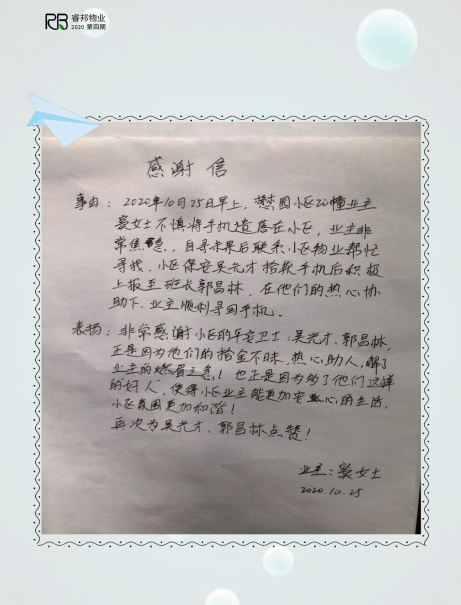 RB 睿邦物业
2020 第四期
感谢信
事由：2020年10月25日早上，懋园小区20幢业主
窦女士不慎将手机遗落在小区，业主非
常焦急，自寻未果后联系小区物业帮忙
寻找，小区保安吴光才拾获手机后积极
上报至班长郭昌林，在他们的热心协
助下，业主顺利寻回手机。
表扬：非常感谢小区的平安卫士：吴光才、郭昌林，
正是因为他们的拾金不昧，热心助人，解了
业主的燃眉之急！也正是因为多了他们这样
的好人，使得小区业主能更加安心的生活，
小区氛围更加和谐！
再次为吴光才、郭昌林点赞！
业主：窦女士
2020.10.25